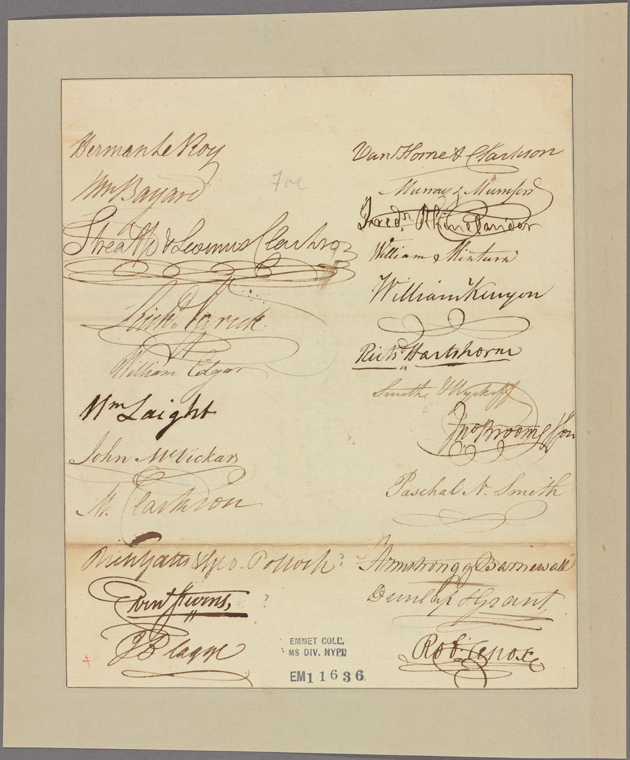 Herman Le Roy
Wm Bayard
& Levinus Clarkson
Richd Varick
William Edgar
Wm Laight
John McVickar
M. Clarkson
Rich Yates & Geo. Pollock
Ebenr Stevens,
J Blagge
Van Horne & Clarkson
Murray & Mumford
Fredk Rhinelander
William & Minturn
William Kenyon
Richd Hartshorne
Smith & Wyckoff
Jno Broome & Son
Paschal N. Smith
Armstrong & Barnewall
Dunlap & Grant,
Robt Lenox
EMMET COLL.
MS DIV. NYPL
EM11636